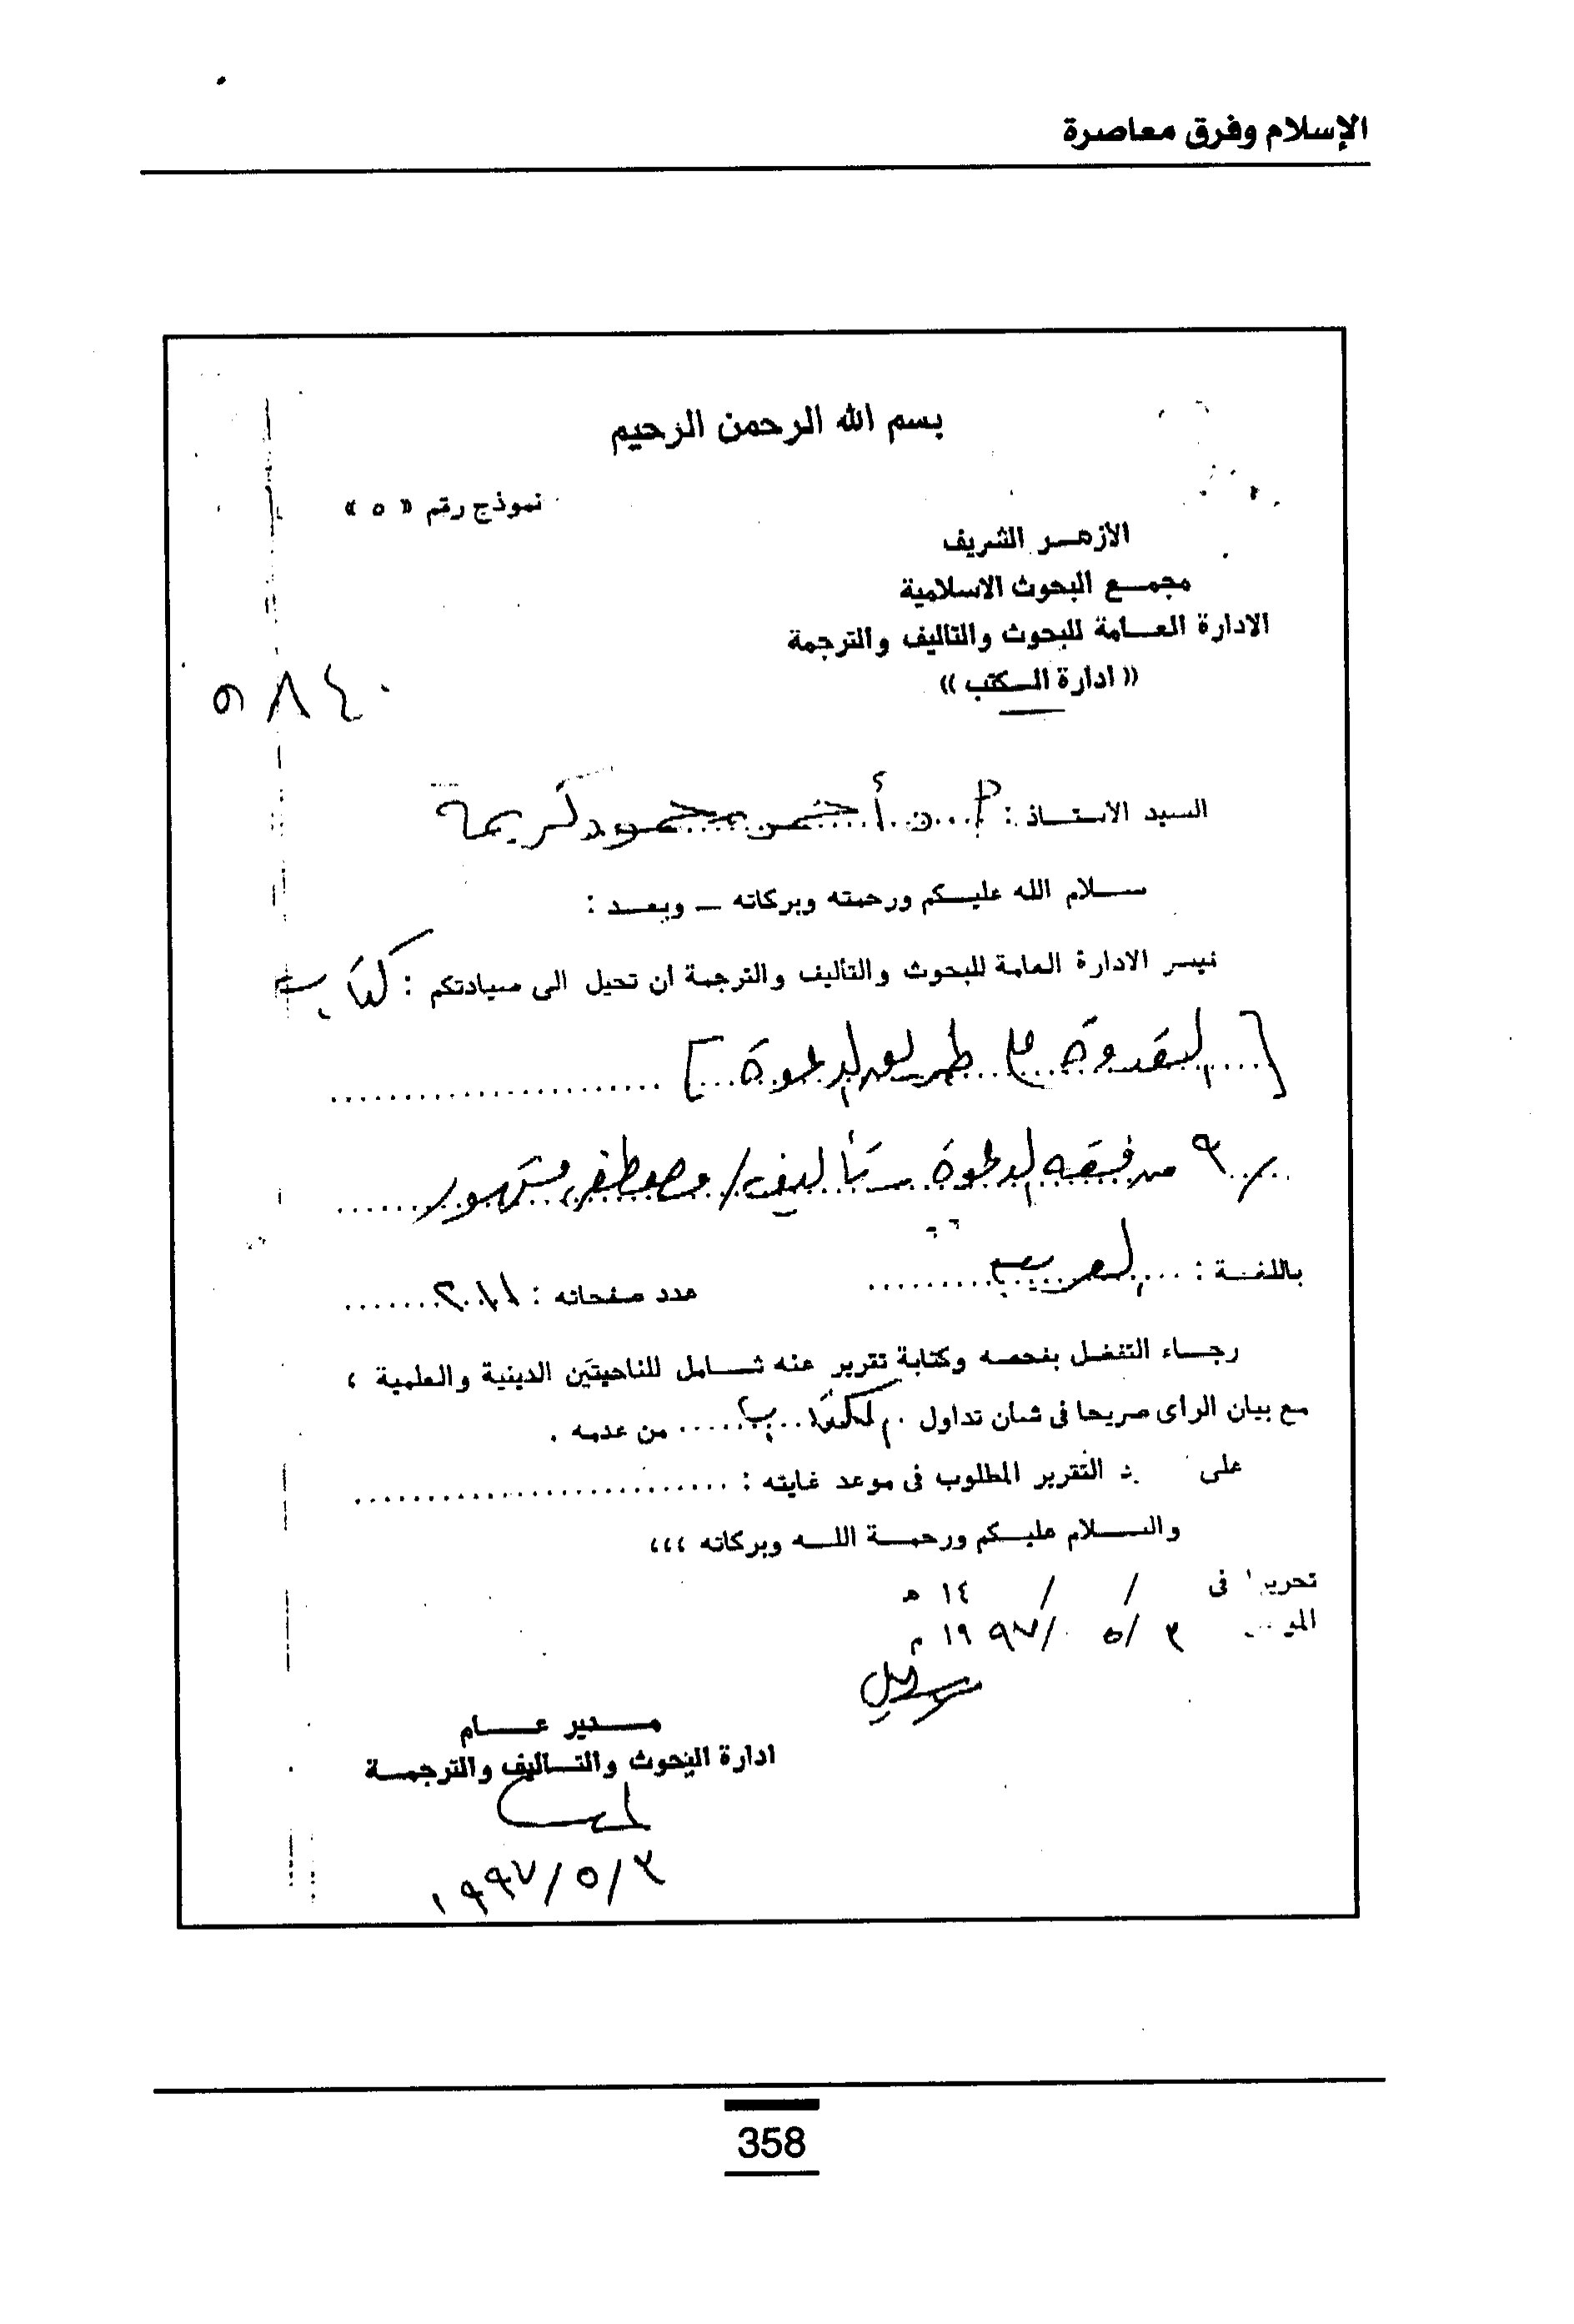 الإسلام وفرق معاصرة
بسم الله الرحمن الرحيم
نموذج رقم « ٥ »
الأزهر الشريف
مجمع البحوث الاسلامية
الادارة العامة للبحوث والتاليف والترجمة
« ادارة الكتب »
٥٨٤٠
السيد الاستاذ : محمود كريمة
سلام الله عليكم ورحمته وبركاته – وبعد :
نيسر الادارة العامة للبحوث والتأليف والترجمة ان تحيل الى سيادتكم : كتاب
[ القدوة على طريق الدعوة ]
٩ من فقه الدعوة – تأليف / مصطفى مشهور
باللغة : العربية
عدد صفحاته :
رجاء التفضل بفحصه وكتابة تقرير عنه شامل للناحيتين الدينية والعلمية ،
مع بيان الراى صريحا فى شان تداول الكتاب من عدمه .
على التقرير المطلوب فى موعد غايته :
والسلام عليكم ورحمة الله وبركاته ،،،
تحريرا فى / / ١٤ هـ
٣ / ٥ / ١٩٩٧ م
مدير عام
ادارة البحوث والتاليف والترجمة
٣/٥/١٩٩٧
358